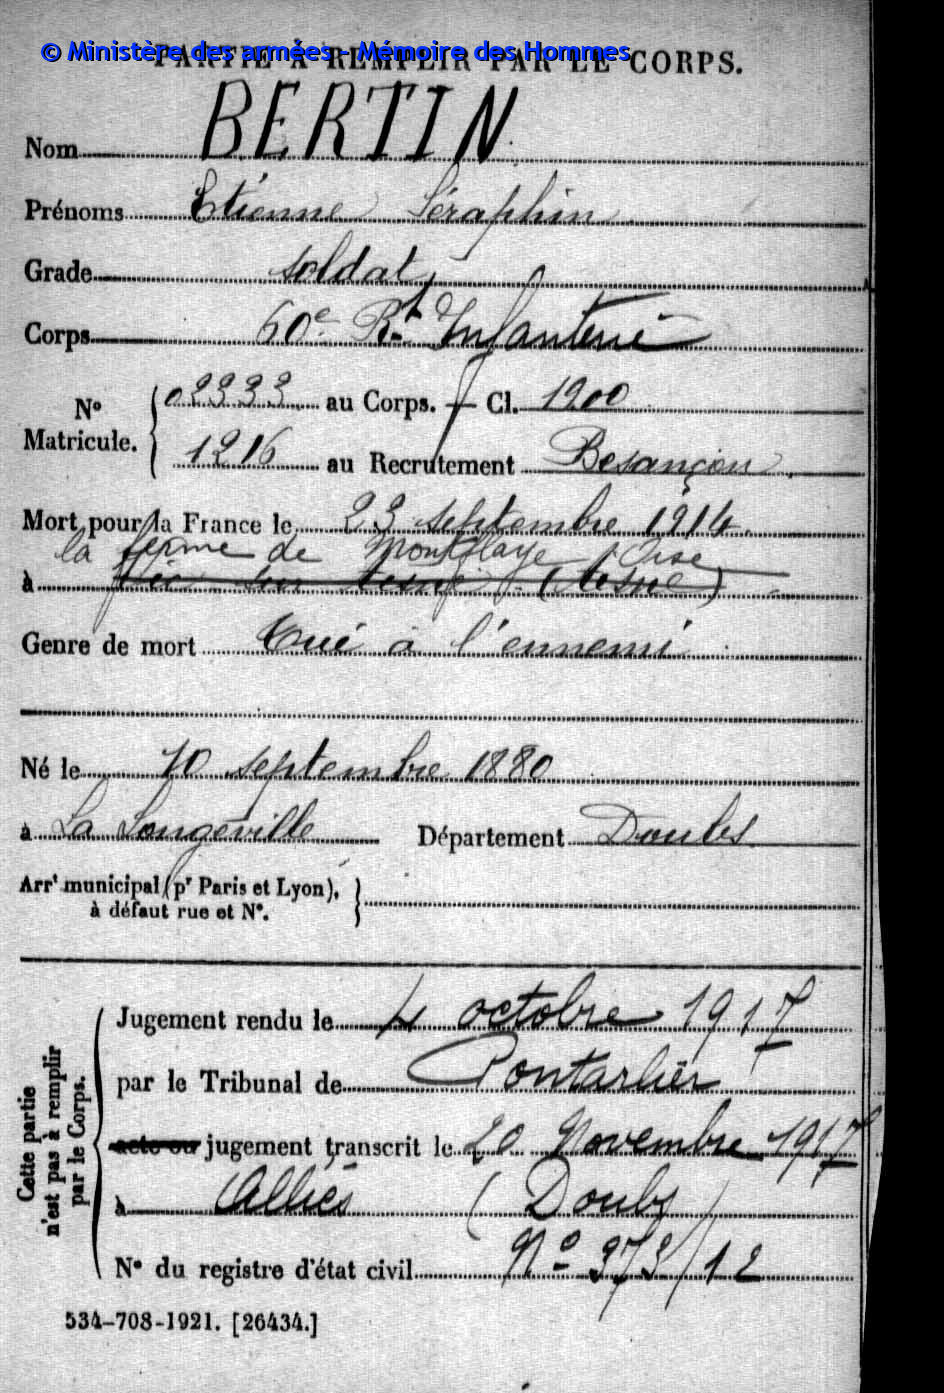 © Ministère des armées - Mémoire des Hommes
PARTIE À REMPLIR PAR LE CORPS.
Nom BERTIN
Prénoms Etienne Séraphin
Grade soldat
Corps 60e Rt Infanterie
No Matricule. 02333 au Corps. — Cl. 1900
1216 au Recrutement Besançon
Mort pour la France le 23 septembre 1914
la ferme de Oise
à Vic sur Aisne (Aisne)
Genre de mort Tué à l'ennemi
Né le 10 septembre 1880
à La Longeville Département Doubs
Arrt municipal (pr Paris et Lyon),
à défaut rue et No.
Cette partie
n'est pas à remplir
par le Corps.
Jugement rendu le 4 octobre 1917
par le Tribunal de Pontarlier
acte ou jugement transcrit le 20 Novembre 1917
à Alliés (Doubs)
No du registre d'état civil No 373/12
534-708-1921. [26434.]